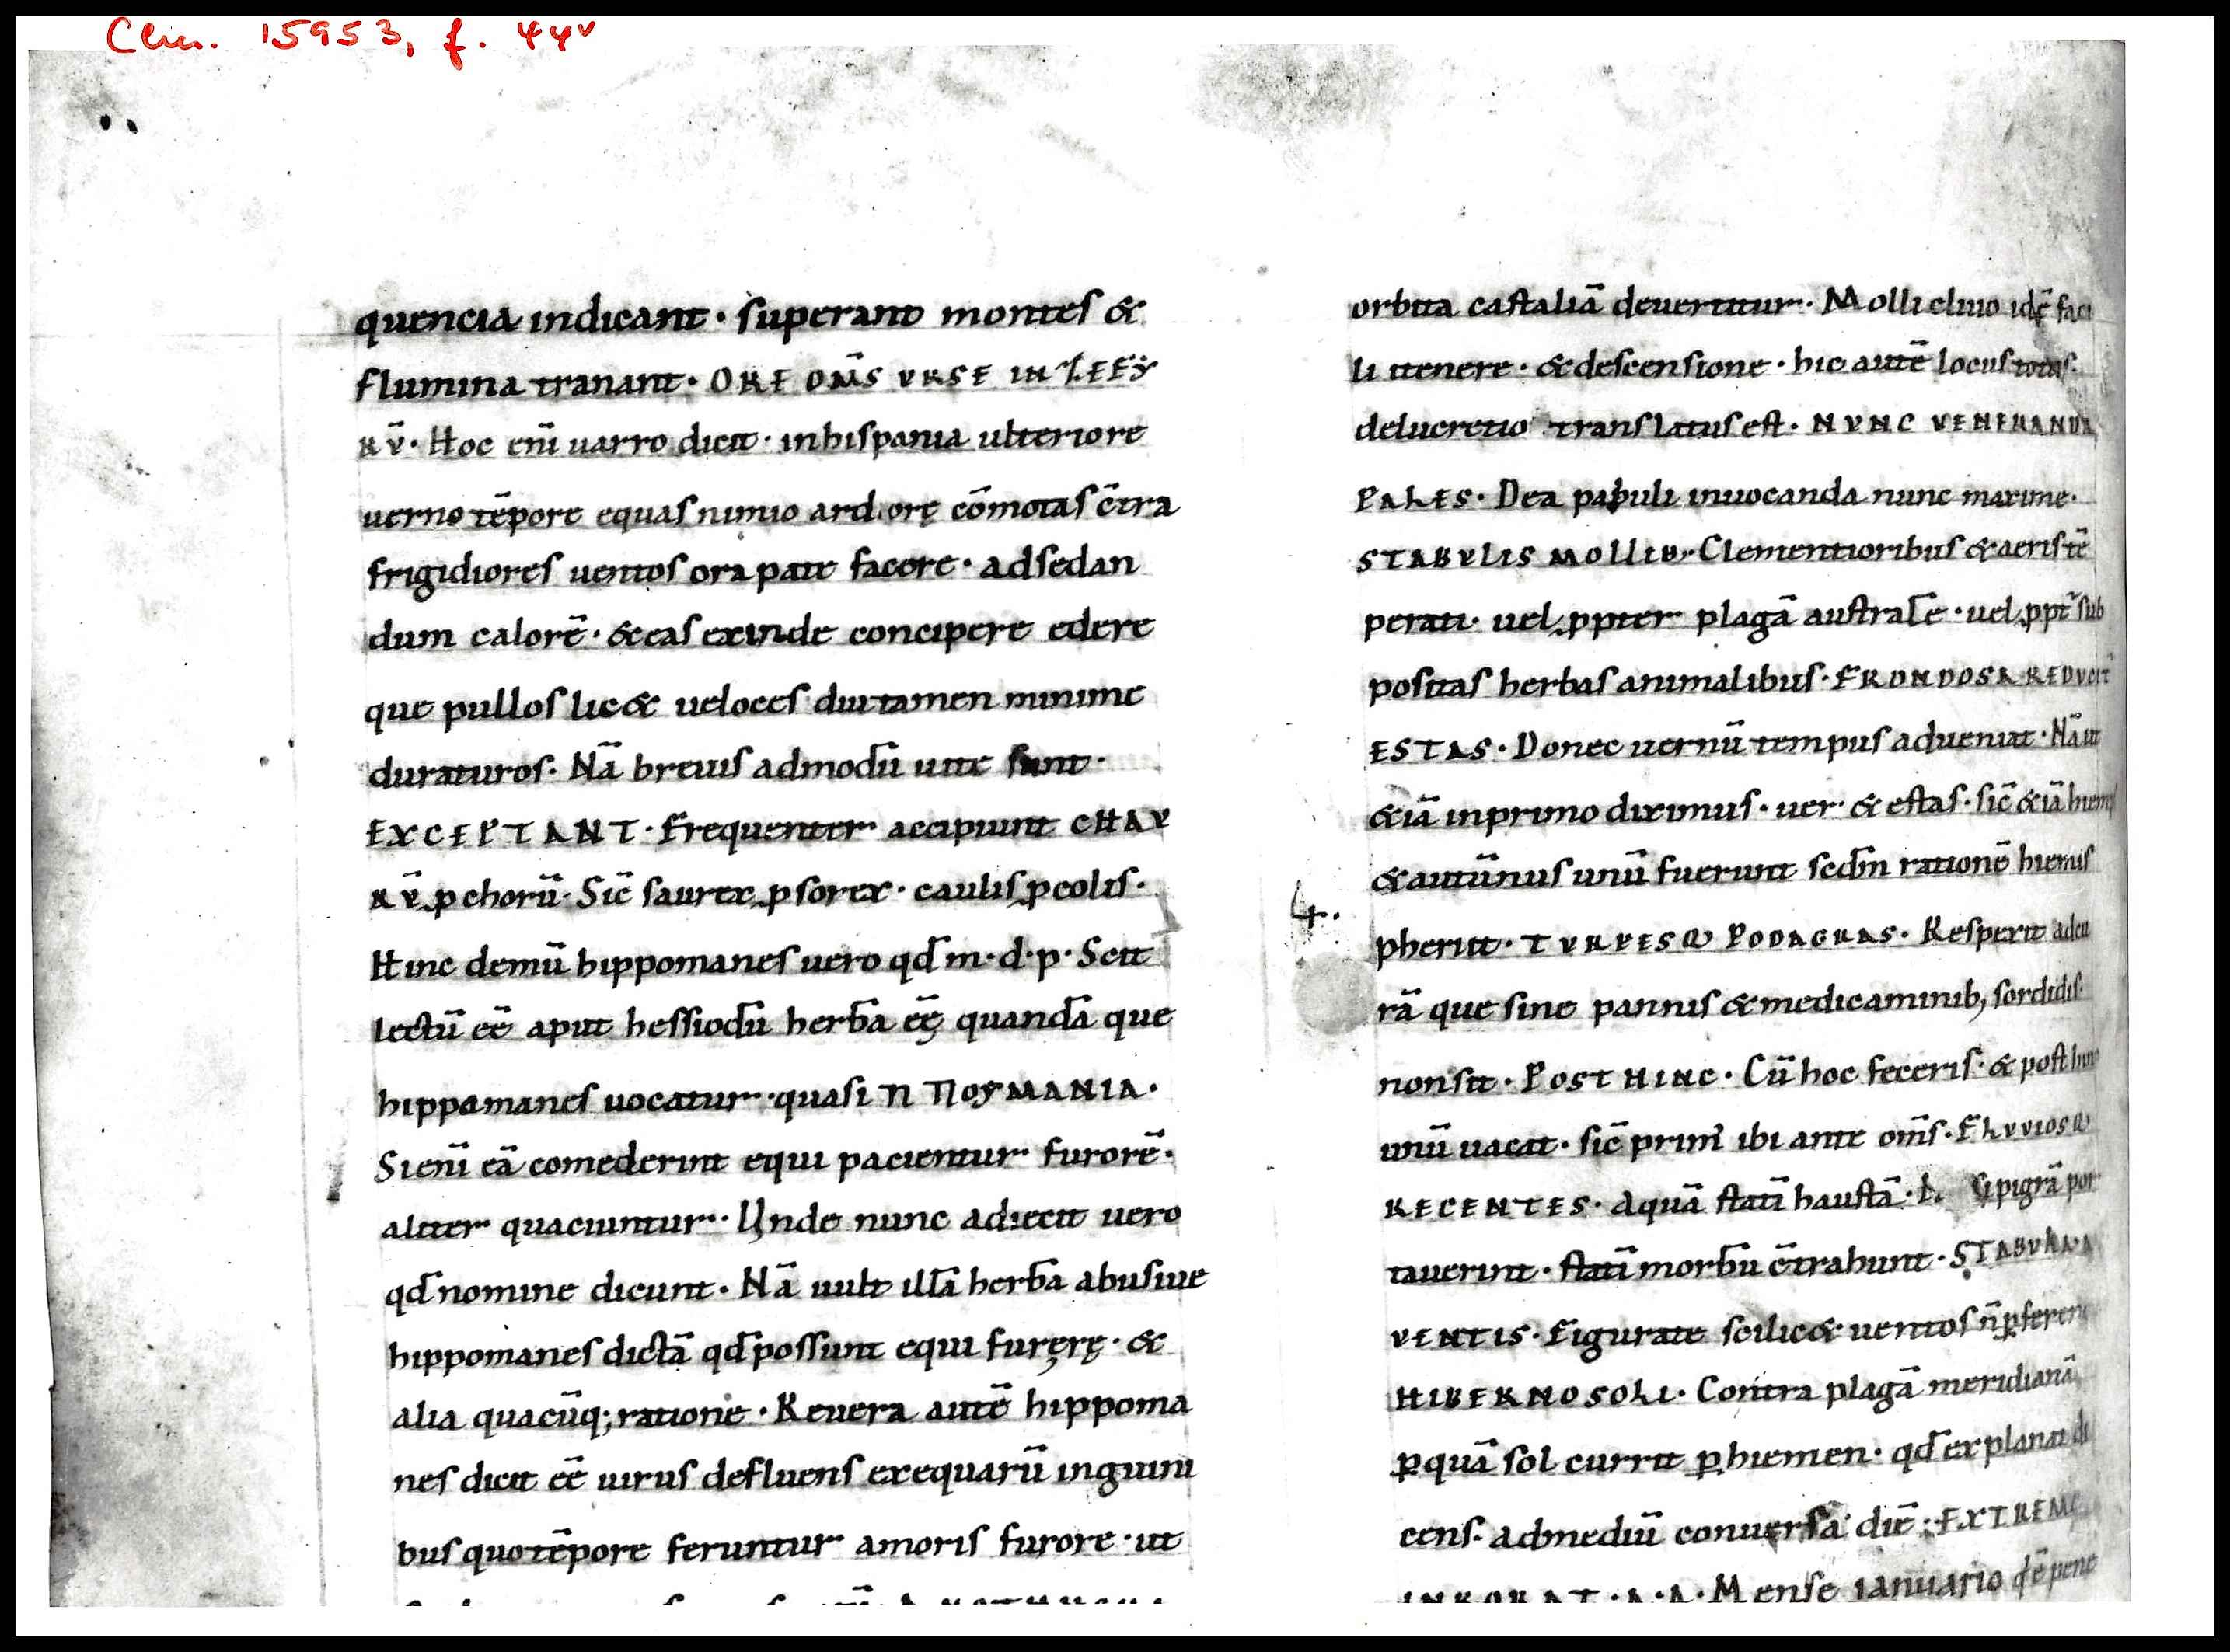 Clm. 15953, f. 44v
quencia indicant · superant montes &
flumina tranant · ORE OM̅S VRSE IN ZEFY
RV̅ · Hoc eni̅ uarro dicit · inhispania ulteriore
uerno te̅pore equas nimio ardore̜ co̅motas c̅tra
frigidiores uentos ora pate facere · adsedan
dum calore̅ · &eas exinde concipere edere
que pullos lic& ueloces diu tamen minime
duraturos · Na̅ breuis admodu̅ uite sunt ·
EXCEPTANT · Frequenter accipiunt CHAV
RV̅ p choru̅ · Sic̅ saurex p sorex · caulis p colis ·
Hinc demu̅ hippomanes uero qd̅ m · d · p · Scit
lectu̅ ee̅ aput hessiodu̅ herba̅ ee̜̅ quanda̅ que
hippomanes uocatur · quasi Π ΠΟΥΜΑΝΙΑ ·
Sieni̅ ea̅ comederint equi pacientur furore̅ ·
aliter quaciuntur · Unde nunc adiecit uero
qd̅ nomine dicunt · Na̅ uult illa̅ herba̅ abusiue
hippomanes dicta̅ qd̅ possunt equi fure̜re̜ · &
alia quacu̅q; ratione · Reuera aute̅ hippoma
nes dicit ee̅ uirus defluens exequaru̅ inguini
bus quo te̅pore feruntur amoris furore · ut
orbita castalia̅ deuertitur · Molli cliuo ide̅ faci
li itenere · &descensione · hic aute̅ locus totus ·
delucretio translatus est · NVNC VENERANDA
PALES · Dea pabuli inuocanda nunc maxime ·
STABVLIS MOLLIB; · Clementioribus &aeris te̅
perati · uel ppter plaga̅ australe̅ · uel ppt̅ sub
positas herbas animalibus · FRONDOSA REDVCIT̅
ESTAS · Donec uernu̅ tempus adueniat · Na̅ ut
&ia̅ inprimo diximus · uer · & estas · sic̅ &ia̅ hiems
&autu̅nus unu̅ fuerunt secd̅m ratione̅ hiemis
4.
pheritt · TVRPESQ PODAGRAS · Respexit adcu
ra̅ que sine pannis &medicaminib; sordidis ·
nonsit · POST HINC · Cu̅ hoc feceris · & post hinc
unu̅ uacat · sic̅ primi̅ ibi ante om̅s · FLVVIOSQ
RECENTES · Aqua̅ stati̅ hausta̅ · pigra̅ por
tauerint · stati̅ morbu̅ c̅trahunt · STABVLA A
VENTIS · Figurate scilic& uentos n̅ pferen
HIBERNO SOLI · Contra plaga̅ meridiana̅
p qua̅ sol currit p hiemen · qd̅ explanat di
cens · admediu̅ conuersa die̅ · EXTREMO
INRORAT · A · A · Mense ianuario